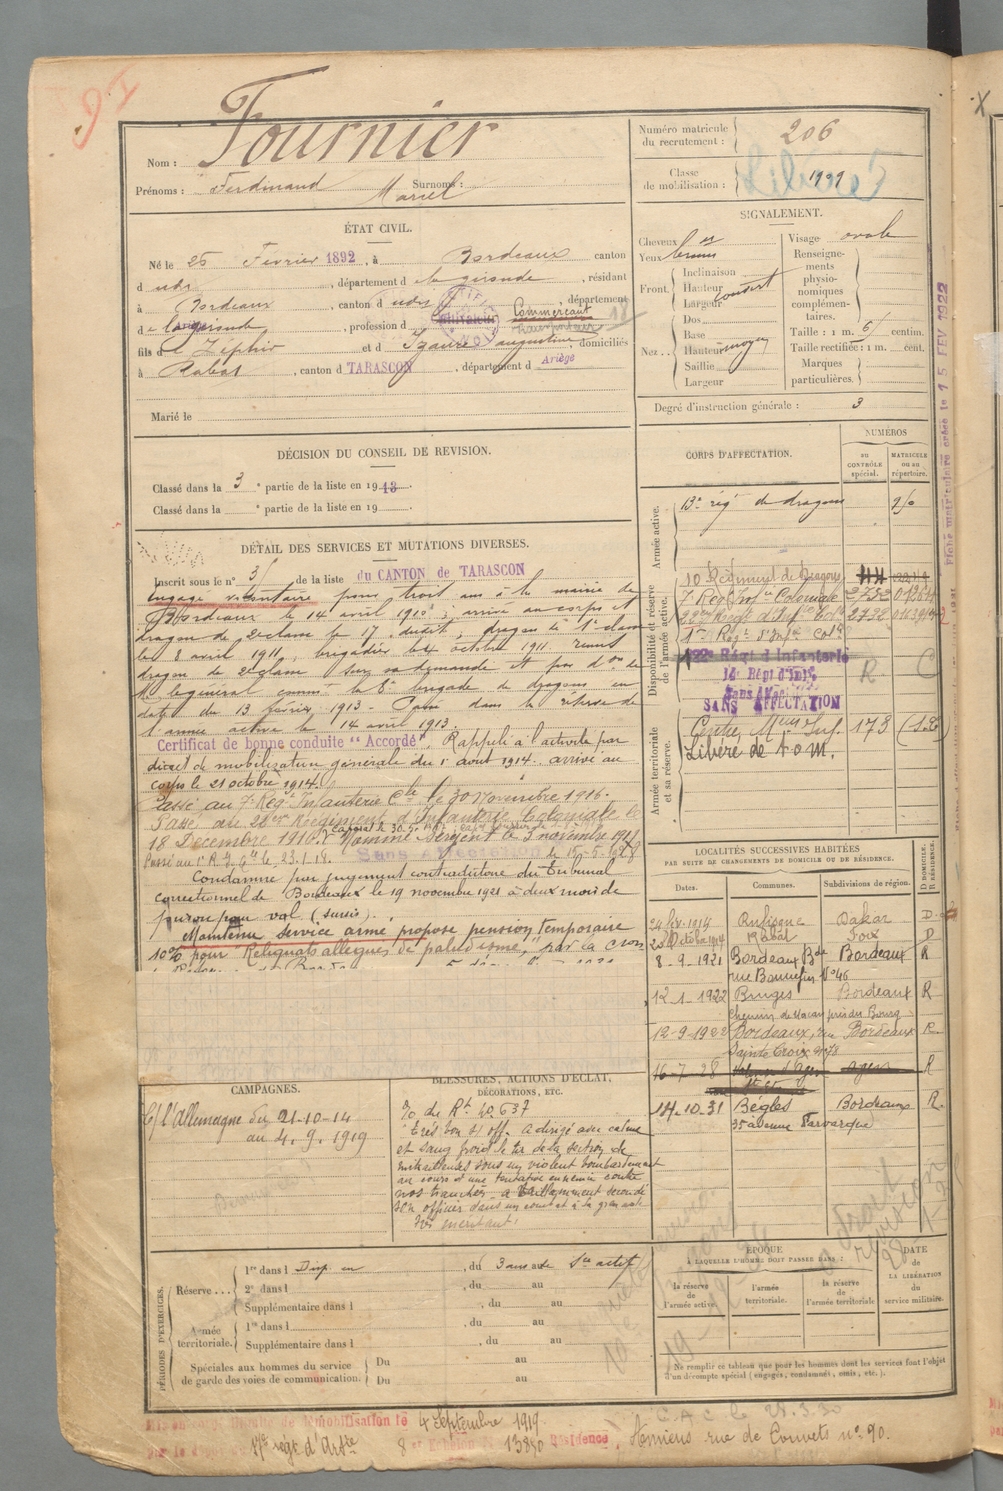 91
Nom : Fournier
Prénoms : Ferdinand Marcel Surnoms :
Numéro matricule du recrutement : 206
Classe de mobilisation : Libéré
ÉTAT CIVIL.
Né le 26 Février 1892, à Bordeaux canton
d udi, département de la gironde, résidant
à Bordeaux, canton d udi, département
de la gironde, profession d Commerçant
fils d Zéphir et d Izaure augustine, domiciliés
à Rabat, canton d TARASCON, département d Ariège
Marié le
SIGNALEMENT.
Cheveux
Yeux bruns
Front.
Inclinaison
Hauteur
Largeur
Nez..
Dos
Base
Hauteur moyen
Saillie
Largeur
Visage ovale
Renseignements physionomiques complémentaires.
Taille : 1 m. 61 centim.
Taille rectifiée : 1 m. cent.
Marques particulières.
Degré d'instruction générale : 3
DÉCISION DU CONSEIL DE REVISION.
Classé dans la 3e partie de la liste en 1913.
Classé dans la e partie de la liste en 19
CORPS D'AFFECTATION.
NUMÉROS
AU CONTRÔLE spécial.
MATRICULE ou au répertoire.
Armée active.
13e rég de dragons
Disponibilité et réserve de l'armée active.
10 Régiment de Dragons
7 Reg Inf ie Coloniale
1er Rég. d'Infie Cole
122e Régt d'Infanterie
14e Régt d'Infie
Sans Aff
SANS AFFECTATION
R C
Armée territoriale et sa réserve.
Centre Meur Inf. 178
Libéré de t.o.m.
Fiche matriculaire créée le 15 FEV 1922
DÉTAIL DES SERVICES ET MUTATIONS DIVERSES.
Inscrit sous le n° 31 de la liste du CANTON de TARASCON
engagé volontaire pour trois ans à la mairie de
Bordeaux le 14 avril 1910 ; arrivé au corps et
dragon de 2e classe le 17 dudit, dragon de 1e classe
le 8 avril 1911, brigadier le 4 octobre 1911. remis
dragon de 2e classe sur sa demande et par don de
M le général comm le 6e brigade de dragons en
date du 13 février 1913 - Passé dans la réserve de
l'armée active le 14 avril 1913.
Certificat de bonne conduite "Accordé". Rappelé à l'activité par
décret de mobilisation générale du 1er aout 1914. arrivé au
corps le 21 octobre 1914.
Passé au 7e Reg. Infanterie Cle le 30 Novembre 1916.
Passé au 22er Régiment d'Infanterie Coloniale le
18 Décembre 1916. Nommé Sergent le 5 novembre 1917
Passé au 1er R.I. Cal le 23.1.18. Sans Affectation le 15-5-1928
Condamné par jugement contradictoire du Tribunal
correctionnel de Bordeaux le 19 novembre 1921 à deux mois de
prison pour vol (sursis).
Maintenu service armé propose pension temporaire
10% pour "Reliquats allégués de paludisme," par la
LOCALITÉS SUCCESSIVES HABITÉES
PAR SUITE DE CHANGEMENTS DE DOMICILE OU DE RÉSIDENCE.
Dates. Communes. Subdivisions de région. D DOMICILE. R RÉSIDENCE.
24 fév. 1914 Rufisque Dakar D.
20 Octobre 1914 Rabat Foix D
8-9-1921 Bordeaux Bde Bordeaux R
rue Bonnefin N° 46
12-1-1922 Bruges Bordeaux R
Chemin de Macau près du Bourg
12-9-1922 Bordeaux, rue Bordeaux R.
Sainte Croix n° 78
16-7-28 Valence d'Agen Agen R
14.10.31 Bègles Bordeaux R.
CAMPAGNES.
C/ l'Allemagne du 21-10-14
au 4.9.1919
BLESSURES, ACTIONS D'ÉCLAT, DÉCORATIONS, ETC.
O/ de Rt
"Très bon s/off. A dirigé avec calme
et sang froid le tir de la section de
mitrailleuses sous un violent bombardement
au cours d'une tentative ennemie contre
nos tranchées. a brillamment secondé
son officier dans un combat à la grenade
Très méritant."
PÉRIODES D'EXERCICES.
Réserve...
1re dans l Disp. en, du 3 ans au
2e dans l, du au
Supplémentaire dans l, du au
Armée territoriale.
1re dans l, du au
Supplémentaire dans l, du au
Spéciales aux hommes du service de garde des voies de communication.
Du au
Du au
ÉPOQUE
À LAQUELLE L'HOMME DOIT PASSER DANS :
la réserve de l'armée active.
l'armée territoriale.
la réserve de l'armée territoriale
DATE DE LA LIBÉRATION du service militaire.
Ne remplir ce tableau que pour les hommes dont les services font l'objet
d'un décompte spécial (engagés, condamnés, omis, etc.).
Mis en congé illimité de démobilisation le 4 Septembre 1919
8e Echelon Résidence, Amiens rue de Couvets n° 90.